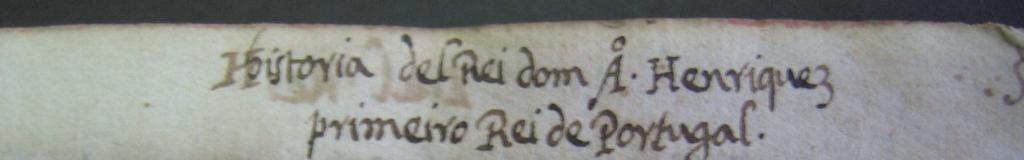 Historia del Rei dom Aº. Henriquez
primeiro Rei de Portugal.